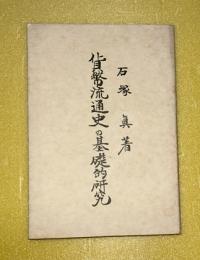 石塚 眞 著
貨幣流通史の基礎的研究